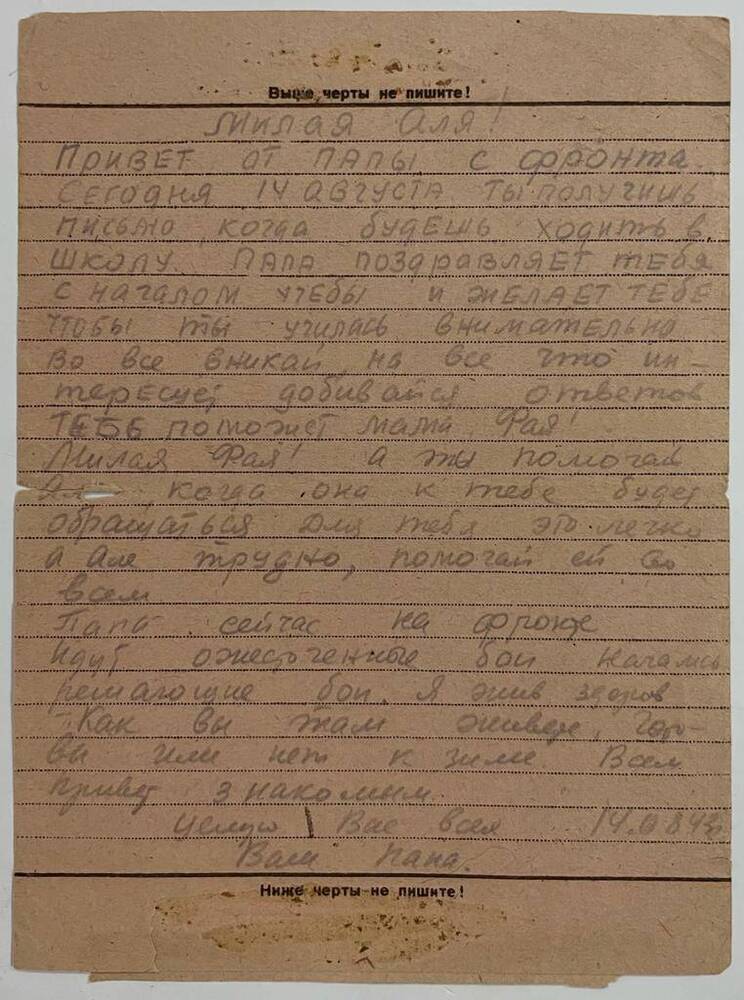 Выше черты не пишите!
Милая Аля!
Привет от папы с фронта.
Сегодня 14 августа ты получишь
письмо когда будешь ходить в
школу. Папа поздравляет тебя
с началом учебы и желает тебе
чтобы ты училась внимательно
Во все вникай, на все что ин-
тересует добивайся ответов
тебе поможет мама Фая!
Милая Фая! а ты помогай
Але, когда она к тебе будет
обращаться Для тебя это легко
а Але трудно, помогай ей во
всем
Папа сейчас на фронте
идут ожесточенные бои начались
решающие бои. Я жив здоров
Как вы там живете, гото-
вы или нет к зиме. Всем
привет знакомым.
Целую Вас всех 14.8.43г
Ваш папа.
Ниже черты не пишите!